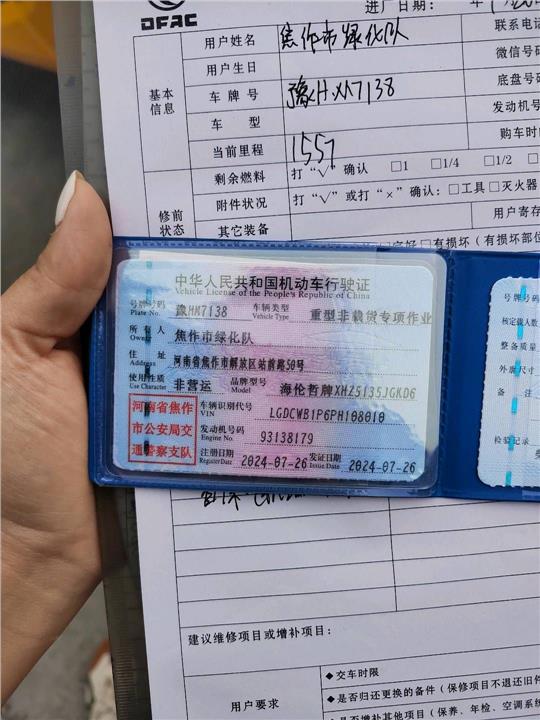 DFAC
进厂日期：
用户姓名 焦作市绿化队 联系电话
用户生日 微信号码
基本信息
车牌号 豫H.M7138 底盘号码
车型 发动机号
当前里程 1557 购车时间
剩余燃料 打“√”确认 □1 □1/4 □1/2
附件状况 打“√”或打“×”确认：□工具□灭火器
修前状态
其它装备 用户寄存
□完好□有损坏（有损坏部位
中华人民共和国机动车行驶证
Vehicle License of the People's Republic of China
号牌号码 豫HM7138 车辆类型 重型非载货专项作业
Plate No. Vehicle Type
所有人 焦作市绿化队
Owner
住址 河南省焦作市解放区站前路50号
Address
使用性质 非营运 品牌型号 海伦哲牌XHZ5135JGKD6
Use Character Model
河南省焦作
市公安局交
通警察支队
车辆识别代号 LGDCWB1P6PH108010
VIN
发动机号码 93138179
Engine No.
注册日期 2024-07-26 发证日期 2024-07-26
Register Date Issue Date
号牌号码
核定载人数
整备质量
外廓尺寸
备注
检验记录
建议维修项目或增补项目：
用户要求
◆交车时限
◆是否归还更换的备件（保修项目不退还旧件
◆是否增补其他项目（保养、年检、空调系统